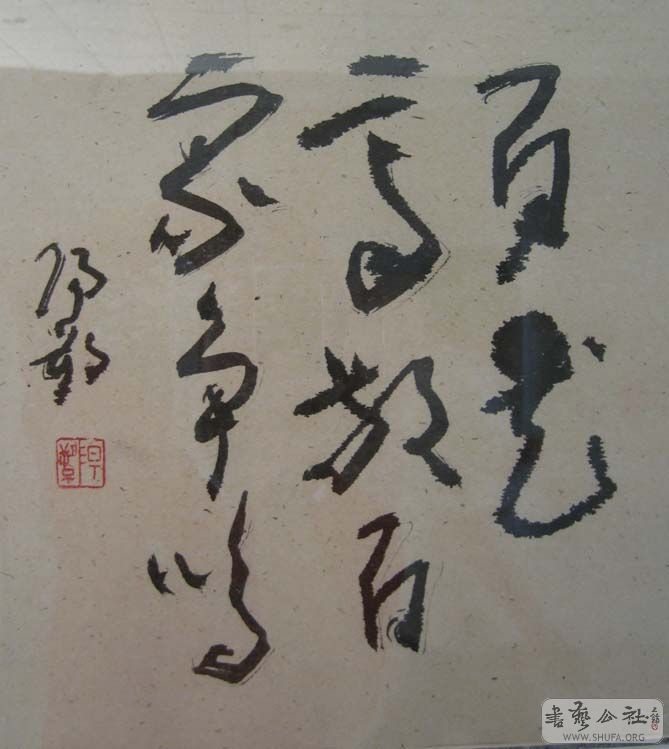 百花
齐放百
家争鸣
書藝公社
WWW.SHUFA.ORG